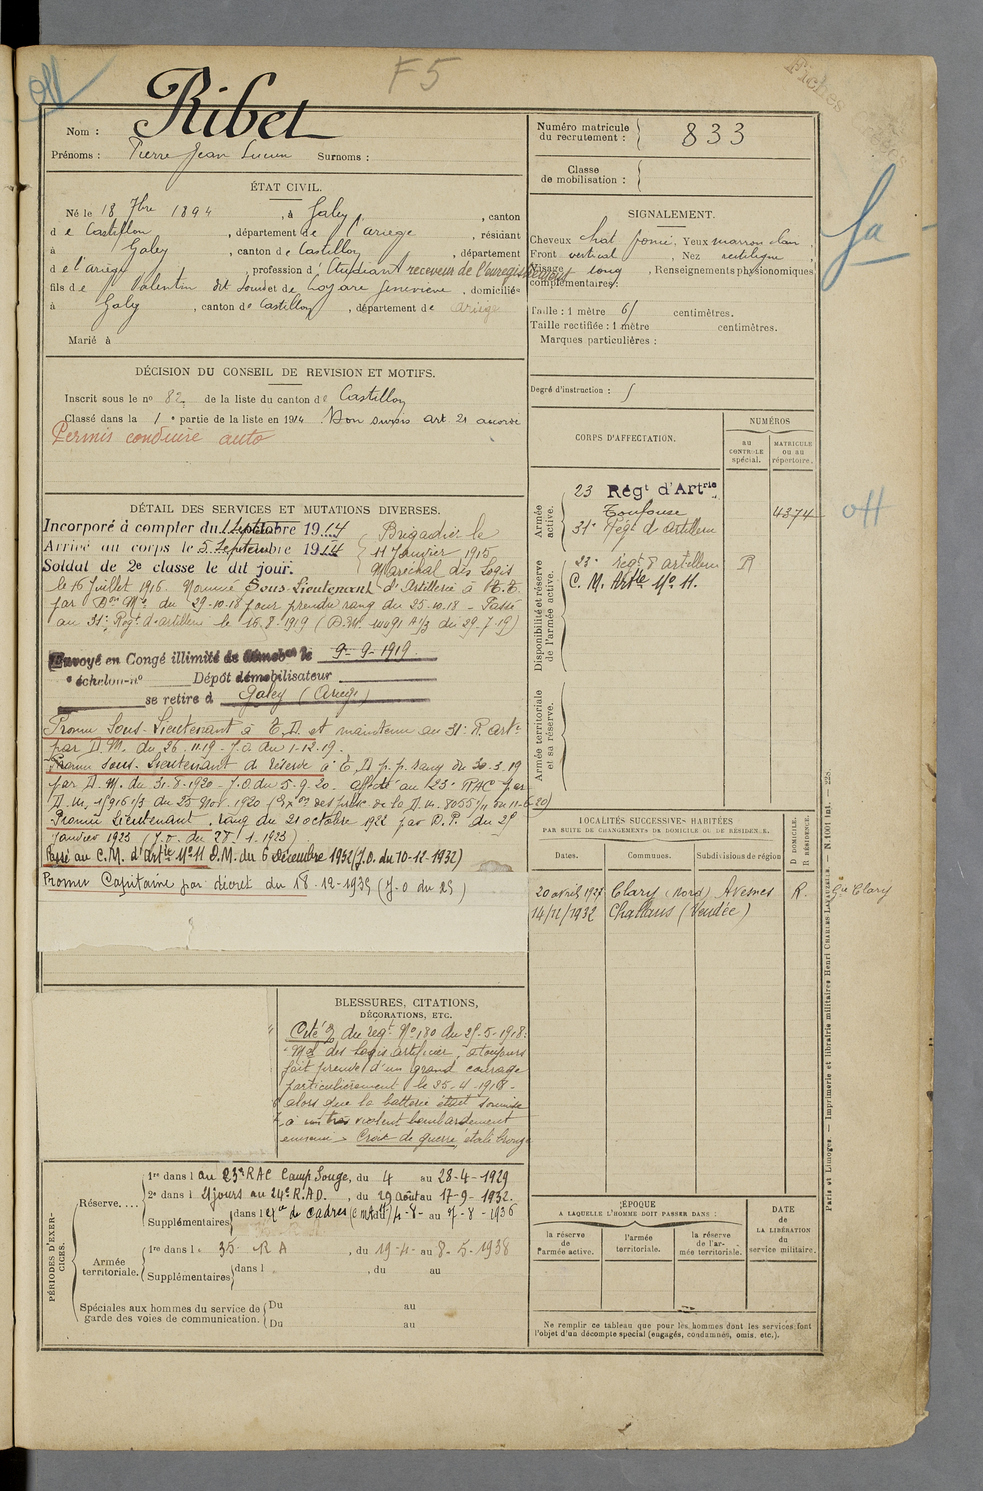 off
F5
Fiches
Nom : Ribet
Prénoms : Pierre Jean Lucien Surnoms :
ÉTAT CIVIL.
Né le 18 7bre 1894, à Galey, canton
de Castillon, département de l'ariège, résidant
à Galey, canton de Castillon, département
de l'ariège, profession d'étudiant receveur de l'enregistrement
fils de Valentin dit Loudet de Logare Geneviève, domiciliés
à Galey, canton de Castillon, département de ariège
Marié à
DÉCISION DU CONSEIL DE REVISION ET MOTIFS.
Inscrit sous le no 82 de la liste du canton de Castillon
Classé dans la 1e partie de la liste en 1914. Bon sursis art 21 accordé
Permis conduire auto
DÉTAIL DES SERVICES ET MUTATIONS DIVERSES.
Incorporé à compter du 1 Septembre 1914
Arrivé au corps le 5 Septembre 1914
Soldat de 2e classe le dit jour.
Brigadier le
11 Janvier 1915
Maréchal des Logis
le 16 Juillet 1916. Nommé Sous-Lieutenant d'Artillerie à T.T.
par Don Mle du 29-10-18 pour prendre rang du 25-10-18 - Passé
au 31e Regt d'artillerie le 16-8-1919 (D.M. 14491 A1/3 du 29-7-19)
Envoyé en Congé illimité de démobon le 9-9-1919.
e échelon-no Dépôt démobilisateur
se retire à Galey (Ariège)
Promu Sous-Lieutenant à T.D. et maintenu au 31e R. Artie
par D.M. du 26-11-19 - J.O du 1-12-19.
Promu Sous-Lieutenant de réserve à T.D p.p. rang du 30-3-19
par D.M. du 31-8-1920 - J.O du 5-9-20. affecté au 23e RAC par
D.M. 19916 1/3 du 25 Nov. 1920
Promu Lieutenant, rang du 21 octobre 1922 par D.P. du 25
Janvier 1923 (J.O. du 27-1-1923)
Passé au C.M. d'artie No 11 D.M. du 6 Décembre 1932 (J.O. du 10-12-1932)
Promu Capitaine par décret du 18-12-1935 (J.O du 25)
BLESSURES, CITATIONS,
DÉCORATIONS, ETC.
Cité à du régt No 180 du 25-5-1918:
"Mal des logis artificier, a toujours
fait preuve d'un grand courage
particulièrement le 25-4-1918 -
alors que la batterie était soumise
à un très violent bombardement
ennemi" Croix de guerre, étoile bronze
PÉRIODES D'EXERCICES.
Réserve....
1re dans l au 23e RAC Camp Souge, du 4 au 28-4-1929
2e dans l 21 jours au 24e R.A.D., du 29 août au 17-9-1932.
Supplémentaires dans l exce de cadres 4-8- au 7-8-1936
Armée territoriale.
1re dans le 35 R A, du 19-4- au 8-5-1938
Supplémentaires dans l , du au
Spéciales aux hommes du service de garde des voies de communication.
Du au
Du au
Numéro matricule du recrutement : 833
Classe de mobilisation :
SIGNALEMENT.
Cheveux chat. foncé, Yeux marron clair,
Front vertical, Nez rectiligne,
Visage long, Renseignements physionomiques
complémentaires:
Taille : 1 mètre 61 centimètres.
Taille rectifiée : 1 mètre centimètres.
Marques particulières :
Degré d'instruction : 5
CORPS D'AFFECTATION.
NUMÉROS
au CONTRÔLE spécial.
MATRICULE ou au répertoire.
Armée active.
23 Régt d'Artrie
Toulouse 4374
31e Regt d'artillerie
Disponibilité et réserve de l'armée active.
23e regt d'artillerie R
C. M. Artie No 11.
Armée territoriale et sa réserve.
LOCALITÉS SUCCESSIVES HABITÉES
PAR SUITE DE CHANGEMENTS DE DOMICILE OU DE RÉSIDENCE.
Dates. Communes. Subdivisions de région
D DOMICILE. R RÉSIDENCE.
20 avril 1925 Clary (Nord) Avesnes R.
14/11/1932 Challans (Vendée)
Clary
ÉPOQUE
A LAQUELLE L'HOMME DOIT PASSER DANS :
la réserve de l'armée active.
l'armée territoriale.
la réserve de l'armée territoriale.
DATE DE LA LIBÉRATION du service militaire.
Ne remplir ce tableau que pour les hommes dont les services font
l'objet d'un décompte spécial (engagés, condamnés, omis, etc.).
off
Paris et Limoges. — Imprimerie et librairie militaires Henri CHARLES-LAVAUZELLE. — N. 1001 Int. — 228.